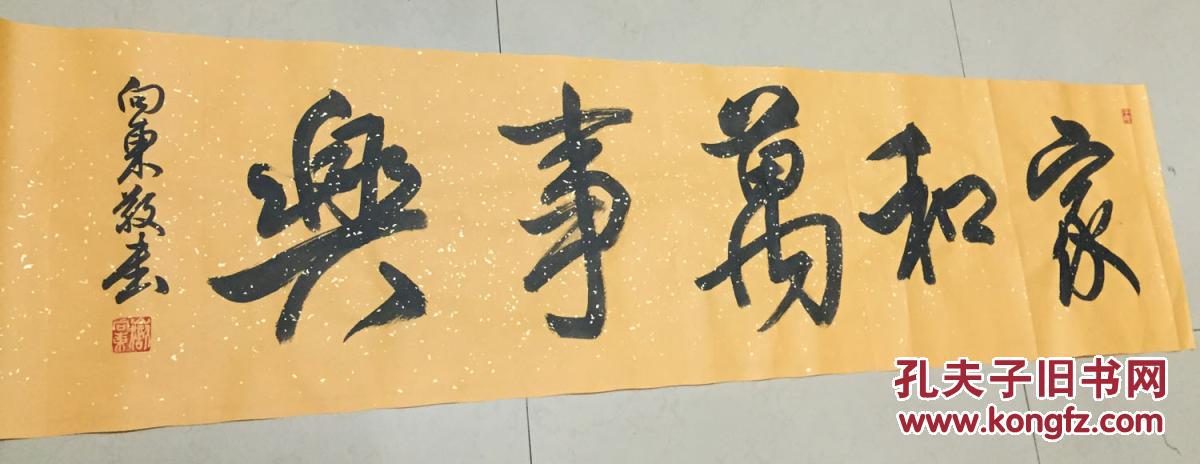 家和萬事興
向東敬書
孔夫子旧书网
www.kongfz.com